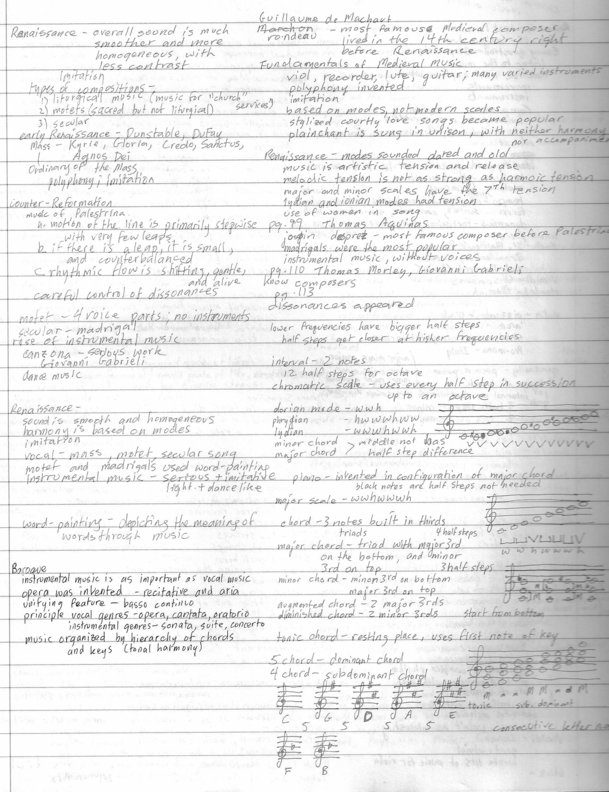 Renaissance - overall sound is much
smoother and more
homogeneous, with
less contrast
Imitation
types of compositions -
1) liturgical music (music for "church" services)
2) motets (sacred but not liturgical)
3) secular
early Renaissance - Dunstable, Dufay
Mass - Kyrie, Gloria, Credo, Sanctus,
Agnus Dei
Ordinary of the Mass
polyphony, imitation
Counter-Reformation
music of Palestrina
a. motion of the line is primarily stepwise
with very few leaps
b. if there is a leap, it is small,
and counterbalanced
C. rhythmic flow is shifting, gentle,
and alive
careful control of dissonances
motet - 4 voice parts; no instruments
secular - madrigal
rise of instrumental music
canzona - serious work
Giovanni Gabrieli
dance music
Renaissance -
sound is smooth and homogeneous
harmony is based on modes
imitation
vocal - mass, motet, secular song
motet and madrigals used word-painting
instrumental music - serious + imitative
light + dancelike
word-painting - depicting the meaning of
words through music
Baroque
instrumental music is as important as vocal music
opera was invented - recitative and aria
unifying feature - basso continuo
principle vocal genres - opera, cantata, oratorio
instrumental genres - sonata, suite, concerto
music organized by hierarchy of chords
and keys (tonal harmony)
Guillaume de Machaut
rondeau - most famous Medieval composer
lived in the 14th century right
before Renaissance
Fundamentals of Medieval Music
viol, recorder, lute, guitar; many varied instruments
polyphony invented
imitation
based on modes, not modern scales
stylized courtly love songs became popular
plainchant is sung in unison, with neither harmony
nor accompanime
Renaissance - modes sounded dated and old
music is artistic tension and release
melodic tension is not as strong as harmonic tension
major and minor scales have the 7th tension
lydian and ionian modes had tension
use of women in song
pg. 99 Thomas Aquinas
josquin desprez - most famous composer before Palestrina
madrigals were the most popular
instrumental music, without voices
pg. 110 Thomas Morley, Giovanni Gabrieli
know composers
pg. 113
dissonances appeared
lower frequencies have bigger half steps
half steps get closer at higher frequencies
interval - 2 notes
12 half steps for octave
chromatic scale - uses every half step in succession
up to an octave
dorian mode - wwh
phrygian - hwwwhww
lydian - wwwhwwh
minor chord > middle not has
major chord half step difference
piano - invented in configuration of major chord
black notes are half steps not needed
major scale - wwhwwwh
chord - 3 notes built in thirds
triads
4 half steps
w w h w w w h
major chord - triad with major 3rd
on the bottom, and minor
3rd on top
3 half steps
minor chord - minor 3rd on bottom
major 3rd on top
augmented chord - 2 major 3rds
diminished chord - 2 minor 3rds
start from bottom
tonic chord - resting place, uses first note of key
5 chord - dominant chord
4 chord - subdominant chord
M m m M M m d M
tonic sub. dominant
C G D A E
5 5 5 5
consecutive letter
F B